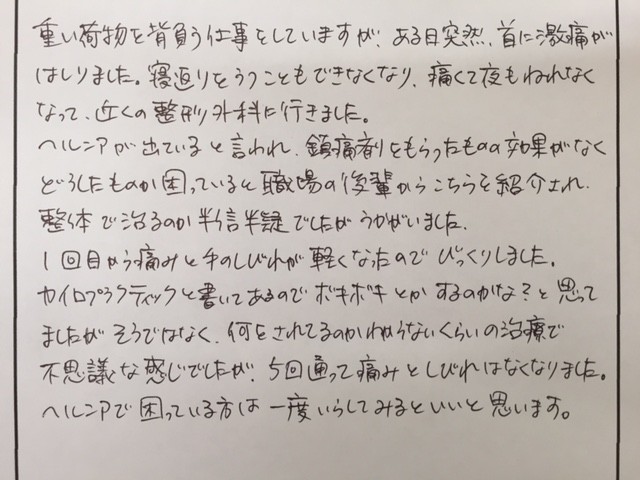 重い荷物を背負う仕事をしていますが、ある日突然、首に激痛が
はしりました。寝返りをうつこともできなくなり、痛くて夜もねれなく
なって、近くの整形外科に行きました。
ヘルニアが出ていると言われ、鎮痛剤をもらったものの効果がなく
どうしたものか困っていると職場の後輩からこちらを紹介され、
整体で治るのか半信半疑でしたがうかがいました。
1回目から痛みと手のしびれが軽くなったのでびっくりしました。
カイロプラクティックと書いてあるのでボキボキとかするのかな?と思って
ましたがそうではなく、何をされてるのかわからないくらいの治療で
不思議な感じでしたが、5回通って痛みとしびれはなくなりました。
ヘルニアで困っている方は一度いらしてみるといいと思います。